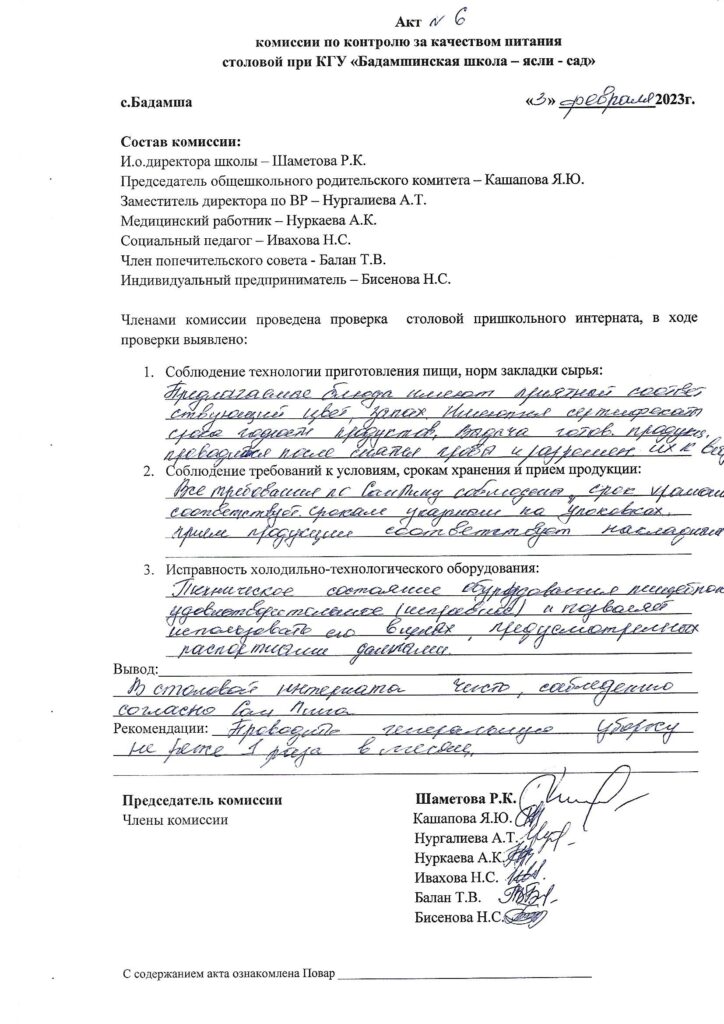 Акт № 6
комиссии по контролю за качеством питания
столовой при КГУ «Бадамшинская школа – ясли - сад»
с.Бадамша «3» февраля 2023г.
Состав комиссии:
И.о.директора школы – Шаметова Р.К.
Председатель общешкольного родительского комитета – Кашапова Я.Ю.
Заместитель директора по ВР – Нургалиева А.Т.
Медицинский работник – Нуркаева А.К.
Социальный педагог – Ивахова Н.С.
Член попечительского совета - Балан Т.В.
Индивидуальный предприниматель – Бисенова Н.С.
Членами комиссии проведена проверка столовой пришкольного интерната, в ходе
проверки выявлено:
1. Соблюдение технологии приготовления пищи, норм закладки сырья:
Предлагаемые блюда имеют приятный соответ
ствующий цвет, запах. Имеются сертификаты
срока годности продуктов. Выдача готов. продукц.
проводится после снятия пробы и разрешен. их к
2. Соблюдение требований к условиям, срокам хранения и прием продукции:
Все требования по СанПину соблюдены, срок хранения
соответствует срокам указанным на упаковках.
прием продукции соответствует накладным
3. Исправность холодильно-технологического оборудования:
Техническое состояние оборудования пищеблока
удовлетворительное (исправное) и позволяет
использовать его в целях, предусмотренных
паспортными данными.
Вывод:
В столовой интерната чисто, соблюдено
согласно Сан Пина
Рекомендации: Проводить генеральную уборку
не реже 1 раза в месяц.
Председатель комиссии Шаметова Р.К.
Члены комиссии Кашапова Я.Ю.
Нургалиева А.Т.
Нуркаева А.К.
Ивахова Н.С.
Балан Т.В.
Бисенова Н.С.
С содержанием акта ознакомлена Повар